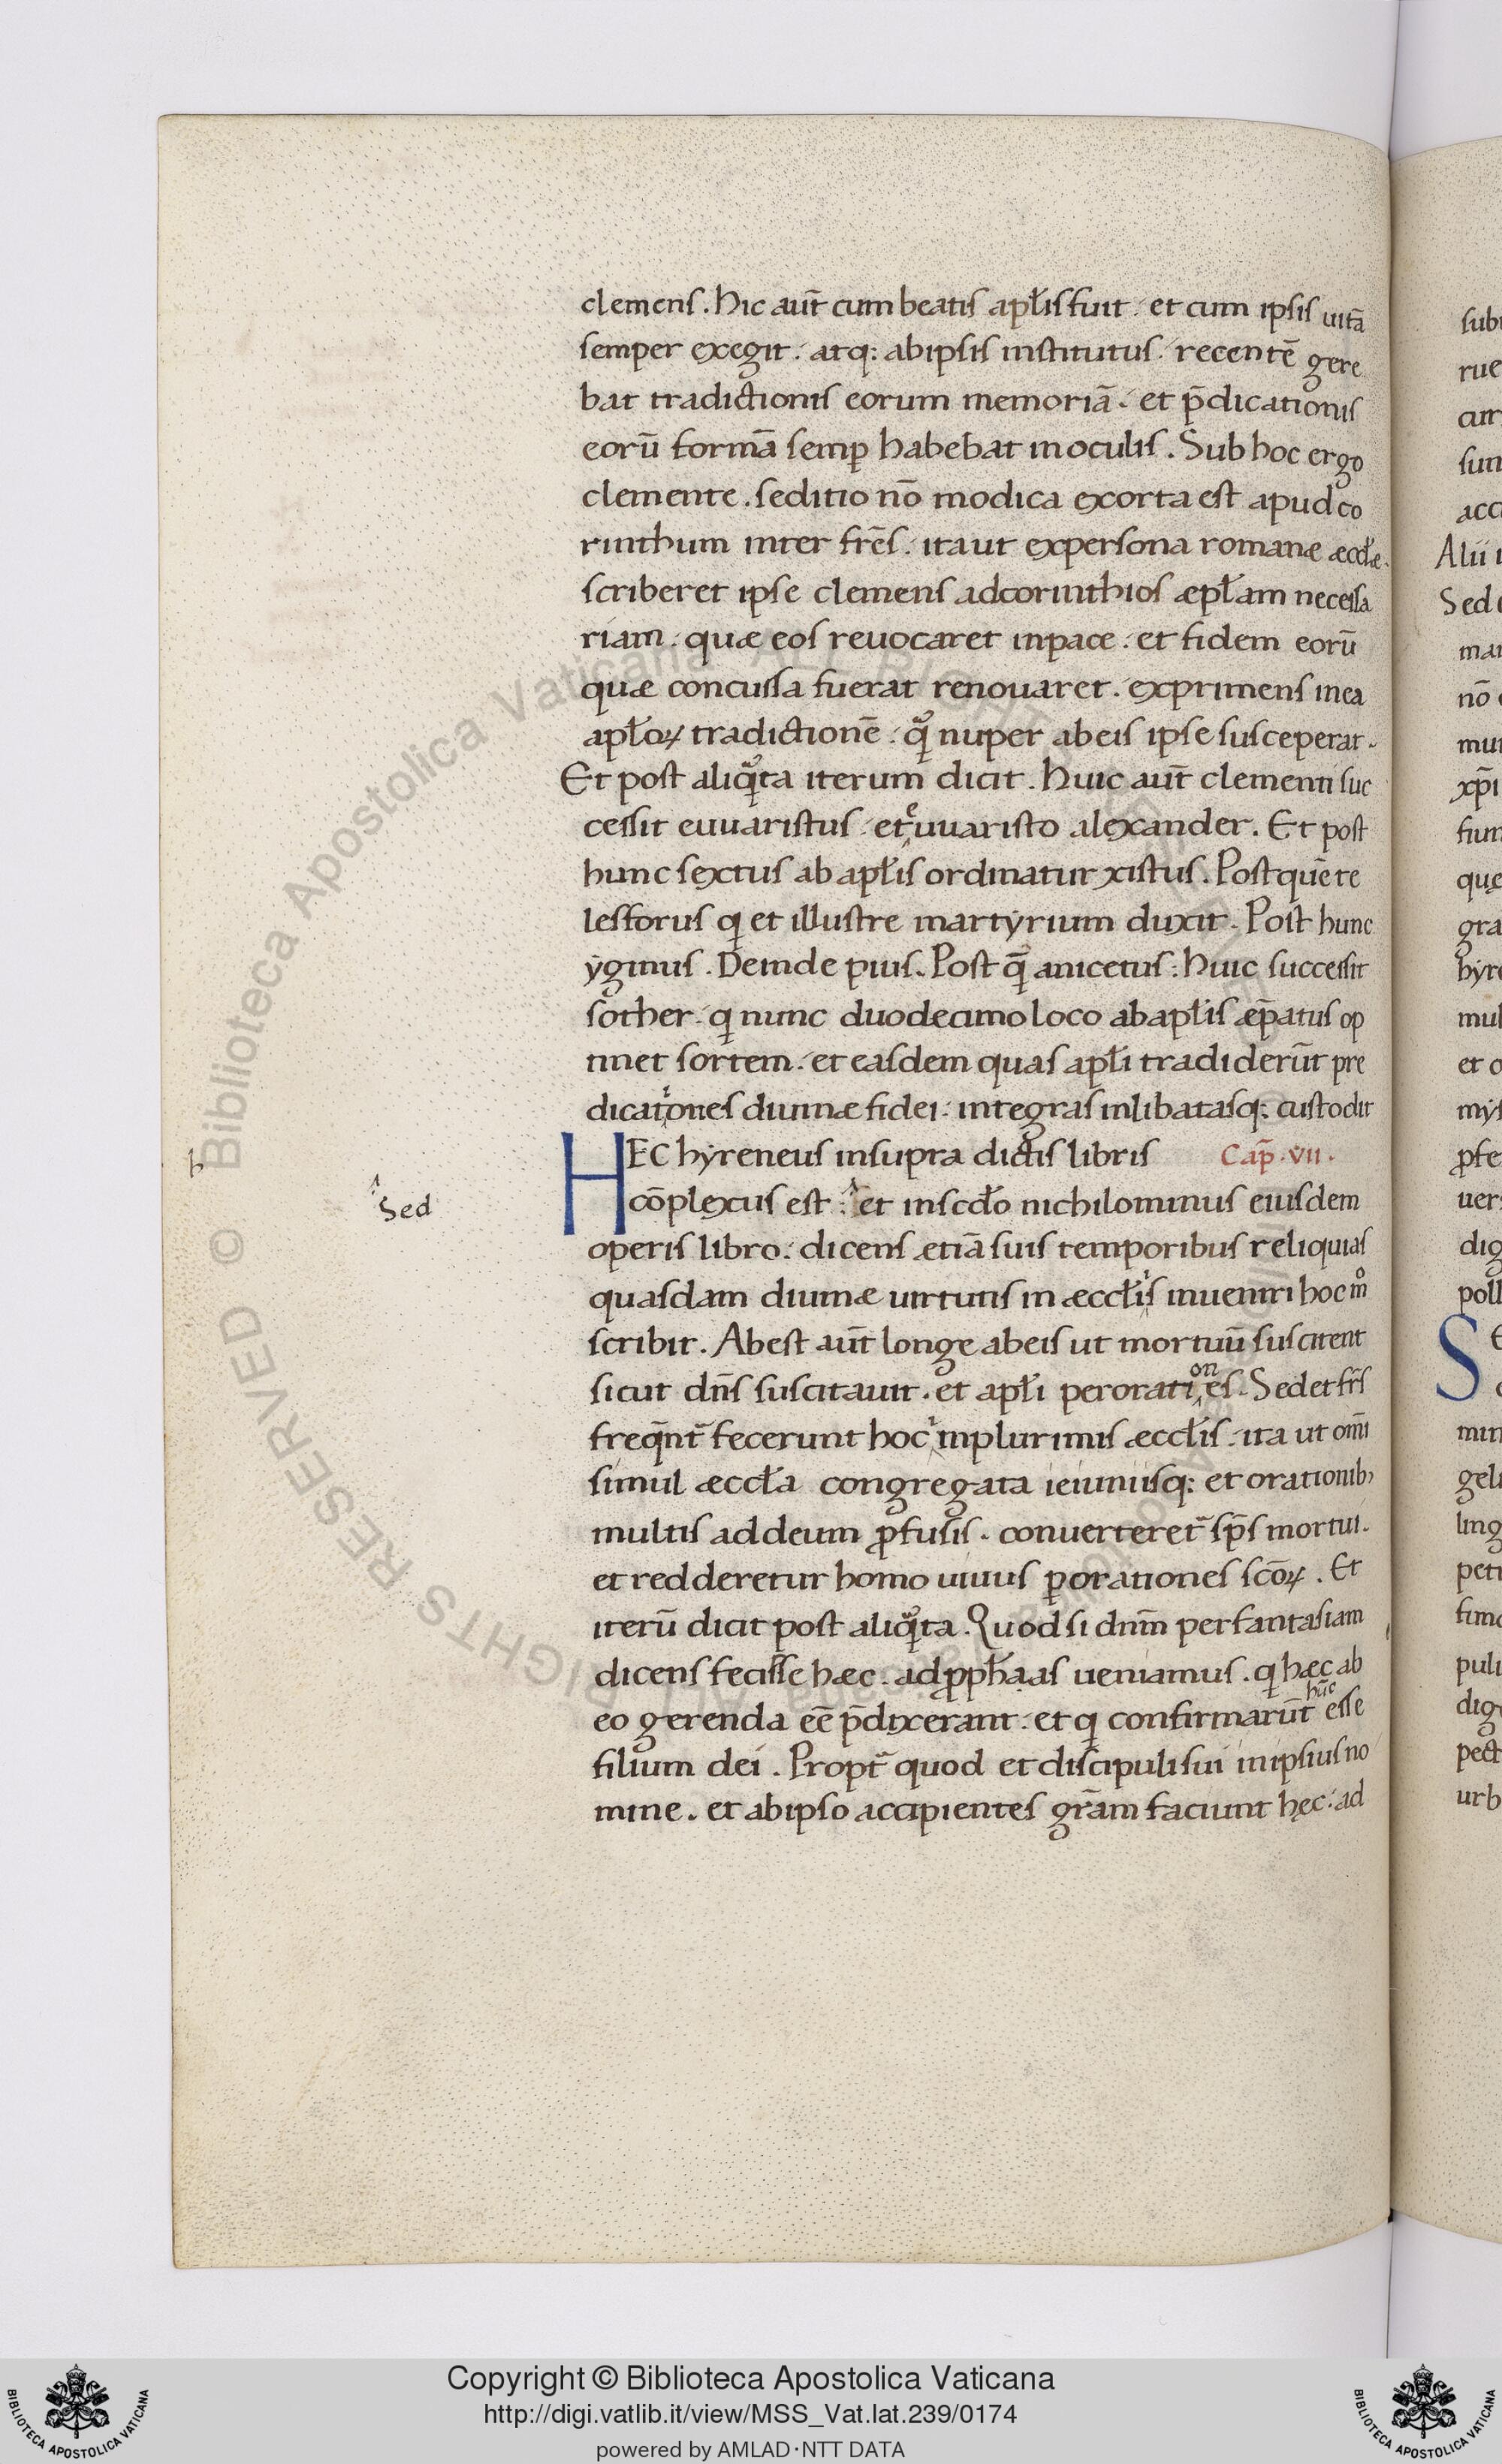 clemens. hic aut̄ cum beatis apl̄is fuit. et cum ipsis uitā
semper exegit. atq: ab ipsis institutus. recentē gere
bat tradictionis eorum memoriā. et p̄dicationis
eorū formā semꝑ habebat in oculis. Sub hoc ergo
clemente. seditio nō modica exorta est apud co
rinthum inter frēs. ita ut ex persona romanæ æccl̄æ.
scriberet ipse clemens ad corinthios æpl̄am necessa
riam. quæ eos reuocaret in pace. et fidem eorū
quæ concussa fuerat renouaret. exprimens in ea
apl̄oꝝ tradictionē. quā nuper ab eis ipse susceperat.
Et post aliqͣta iterum dicit. huic aut̄ clementi suc
cessit euuaristus. et euuaristo alexander. Et post
hunc sextus ab apl̄is ordinatur xistus. Post quē te
lesforus qui et illustre martyrium duxit. Post hunc
ẏginus. Deinde pius. Post q̄ anicetus: huic successit
sother. qui nunc duodecimo loco ab apl̄is æp̄atus op
tinet sortem. et easdem quas apl̄i tradiderūt pre
dicationes diuinæ fidei. integras inlibatasq: custodit
HEC hẏreneus in supra dictis libris Cap̄. vii.
cōplexus est. et in scd̄o nichilominus eiusdem
Sed
operis libro. dicens etiā suis temporibus reliquias
quasdam diuinæ uirtutis in æccl̄iis inueniri hoc mͦ
scribit. Abest aut̄ longe ab eis ut mortuū suscitent
sicut dn̄s suscitauit. et apl̄i per orationes. Sed et fr̄s
freq̄nt̄ fecerunt hoc in plurimis æccl̄is. ita ut om̄i
simul æccl̄a congregata ieiuniisq: et orationib;
multis ad deum ꝓfusis. conuerteret̄ sp̄s mortui.
et redderetur homo uiuus ꝑ orationes scōꝝ. Et
iterū dicit post aliqͣta. Quod si dnm̄ per fantasiam
dicens fecisse hæc. ad ꝓpħaas ueniamus. qui hæc ab
eo gerenda eē p̄dixerant. et qui confirmarūt hūc esse
filium dei. Propt̄ quod et discipuli sui in ipsius no
mine. et ab ipso accipientes gr̄am faciunt hęc: ad
Copyright © Biblioteca Apostolica Vaticana
http://digi.vatlib.it/view/MSS_Vat.lat.239/0174
powered by AMLAD·NTT DATA